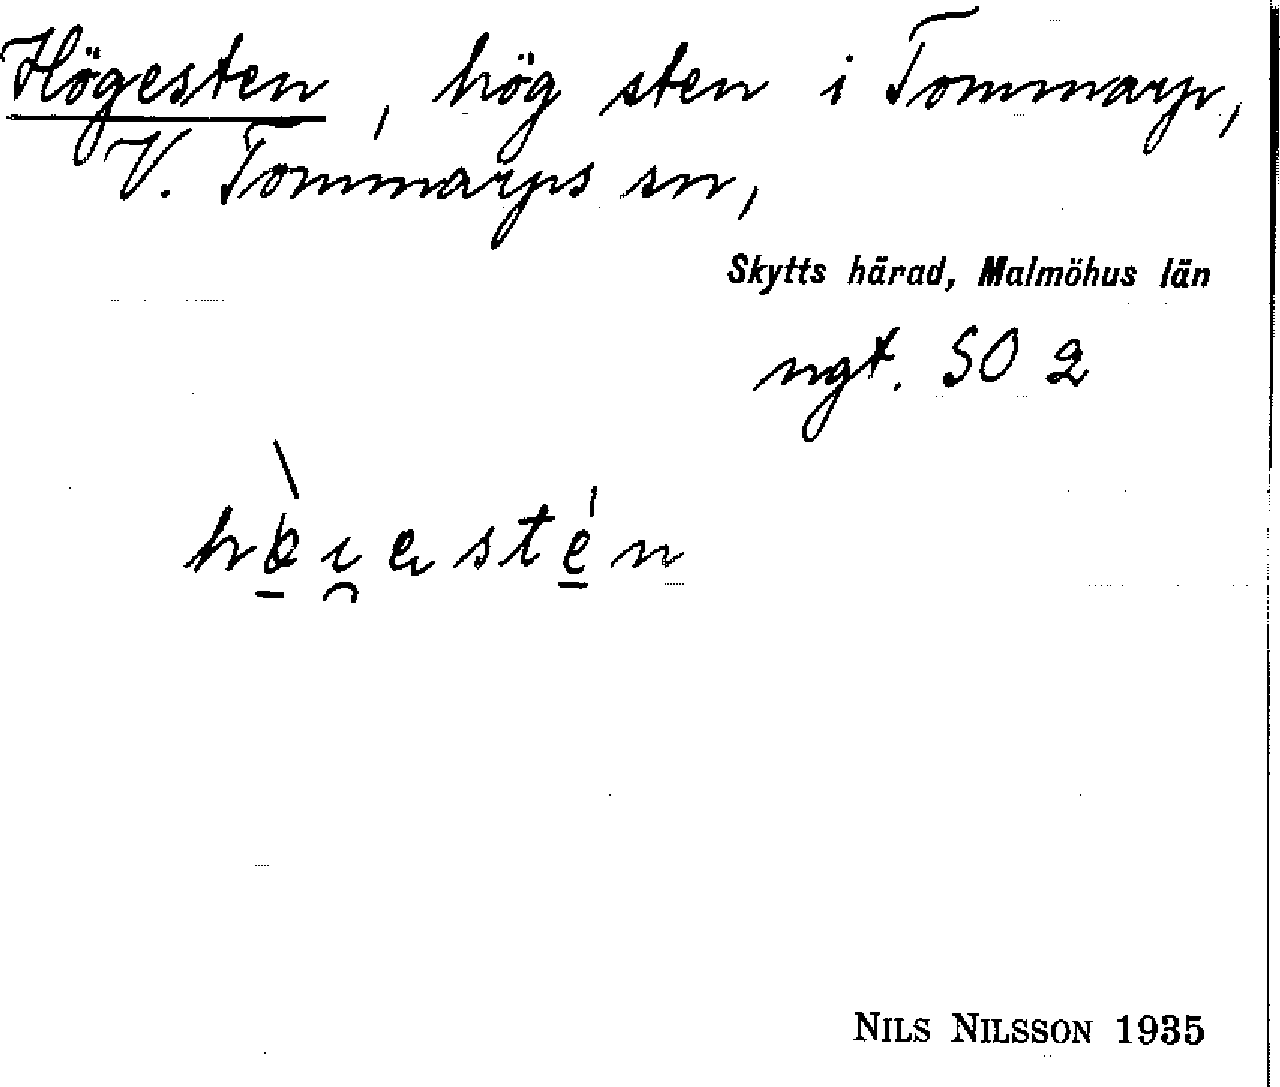 Högesten, hög sten i Tommarp,
V. Tommarps sn,
Skytts härad, Malmöhus län
ngt. SO 2
NILS NILSSON 1935